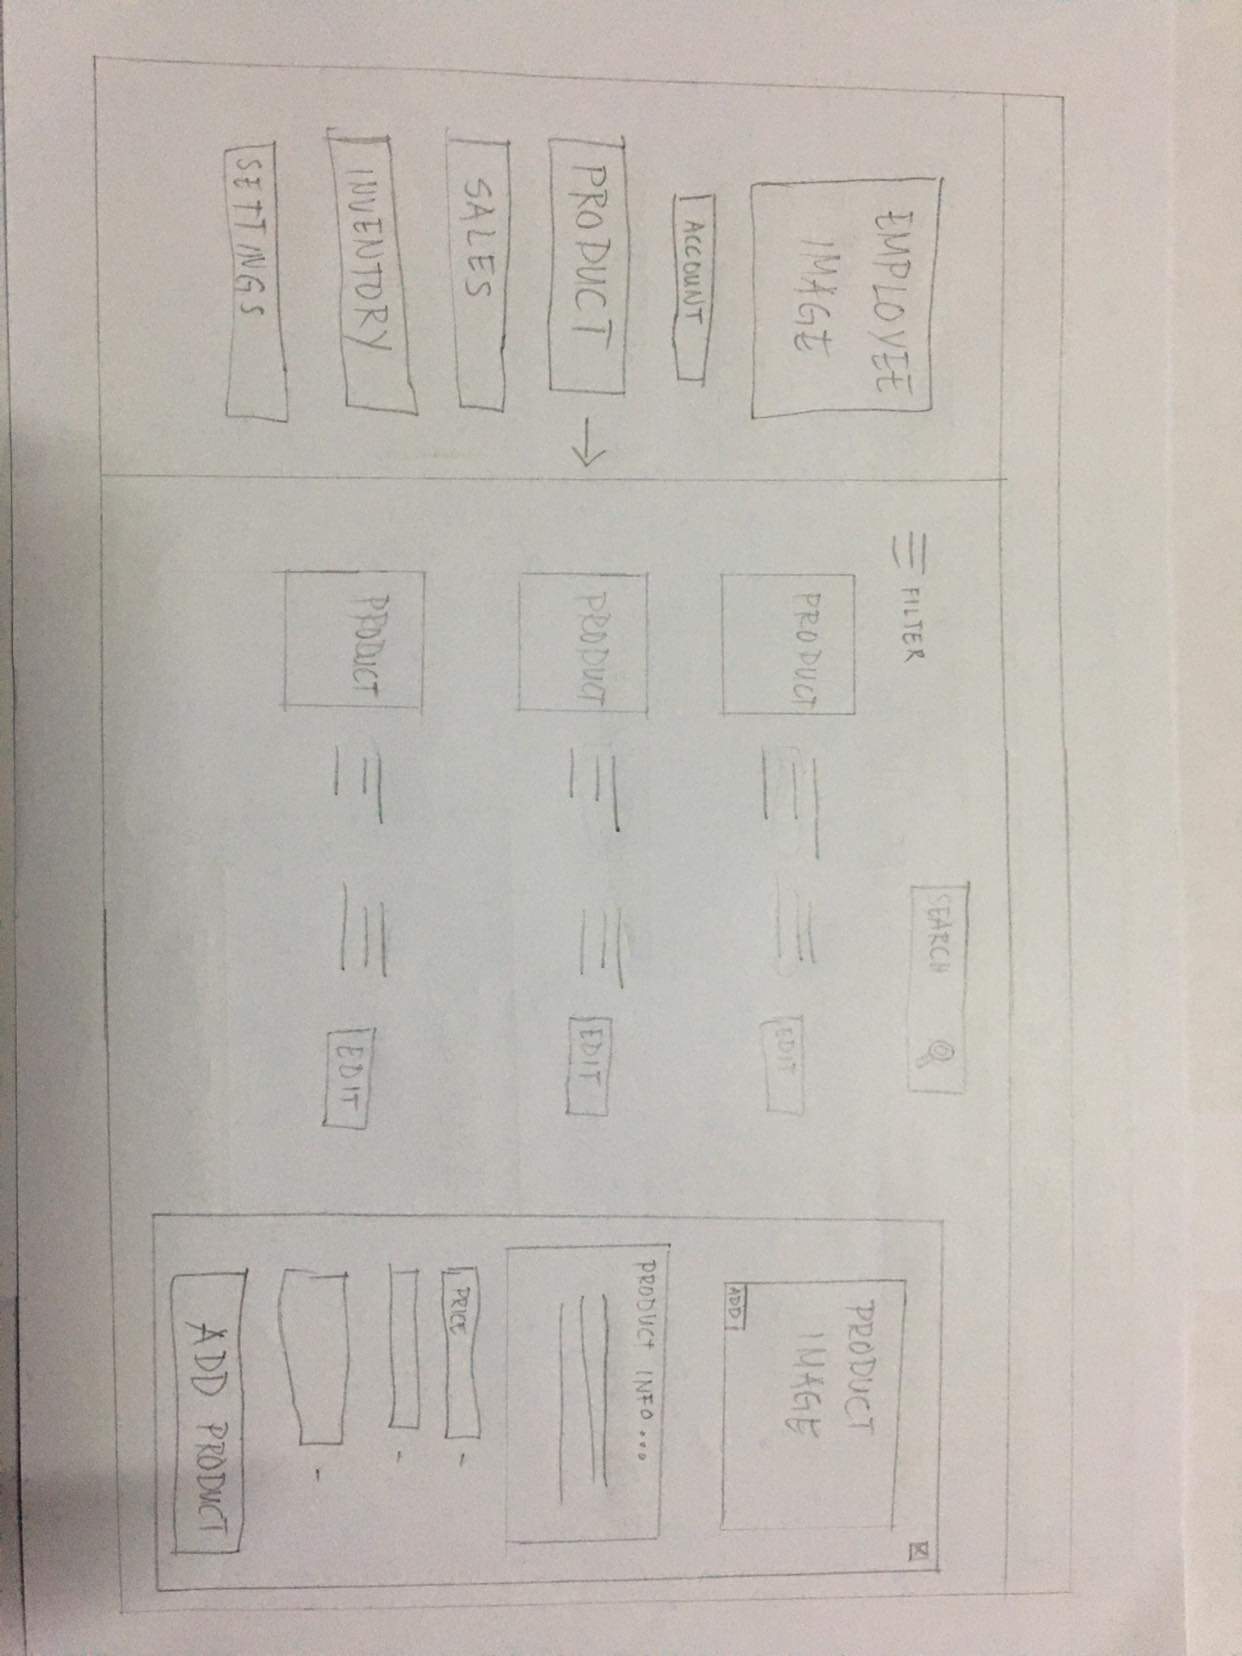 EMPLOYEE
IMAGE
ACCOUNT
PRODUCT →
SALES
INVENTORY
SETTINGS
FILTER
SEARCH
PRODUCT
EDIT
PRODUCT
EDIT
PRODUCT
EDIT
PRODUCT
IMAGE
ADD
PRODUCT INFO...
PRICE
ADD PRODUCT